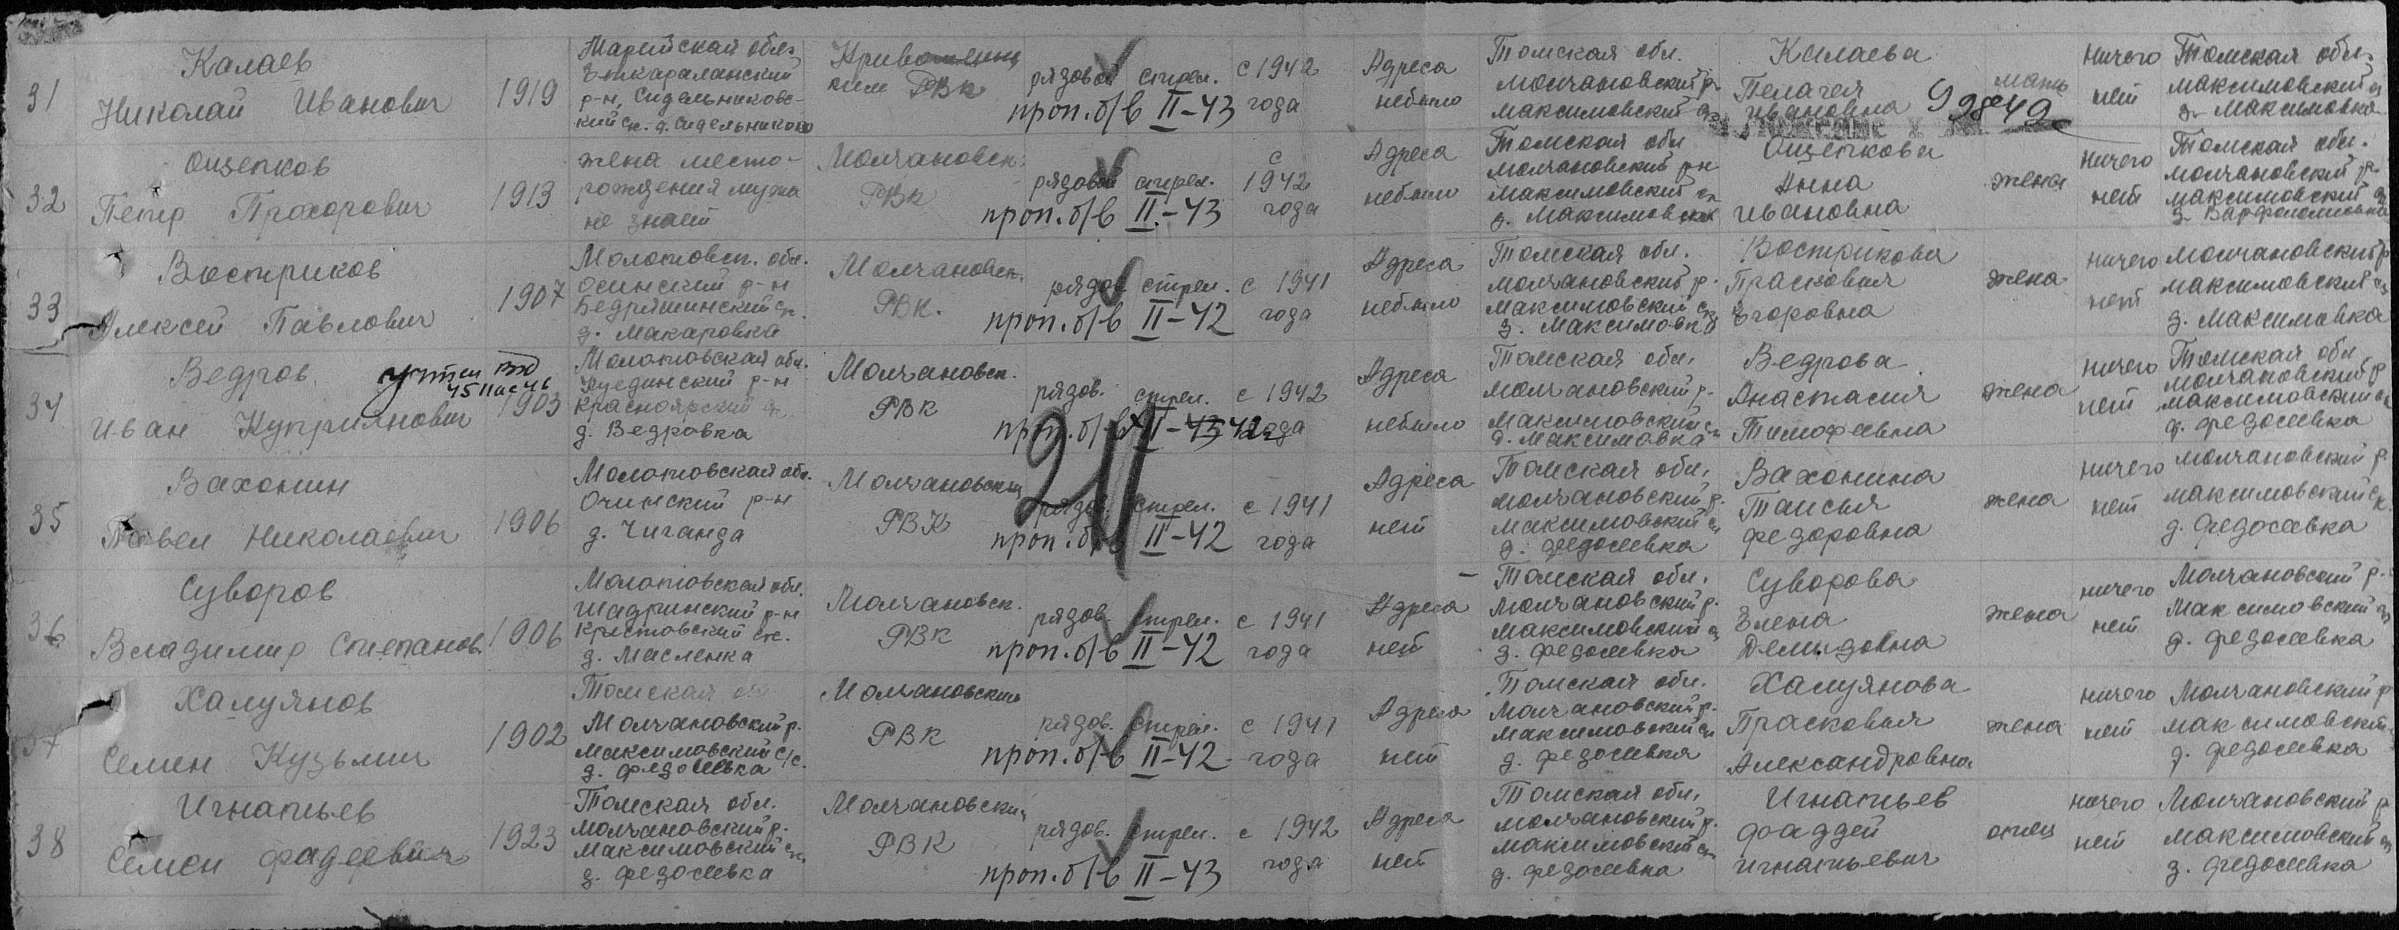 31
Калаев
Николай Иванович
1919
Марийская обл.
р-н, Сидельниковс-
кий с/с. д. Сидельниково
РВК
рядовой стрел.
проп. б/в II-43
с 1942
года
Адреса
небыло
Томская обл.
молчановский р-
максимовский
Калаева
Пелагея
Ивановна
мать
ничего
нет
Томская обл.
максимовский
д. Максимовка
32
Ощепков
Петр Прохорович
1913
жена место-
рождения мужа
не знает
Молчановск.
РВК
рядовой стрел.
проп. б/в II-43
с
1942
года
Адреса
небыло
Томская обл
молчановский р-н
максимовский
д. Максимовка
Ощепкова
Анна
Ивановна
жена
ничего
нет
Томская обл.
молчановский р-
максимовский
33
Востриков
Алексей Павлович
1907
Молотовск. обл.
Осинский р-н
д. Макаровка
Молчановск.
РВК.
рядов. стрел.
проп. б/в II-42
с 1941
года
Адреса
небыло
Томская обл.
молчановский р-
максимовский
д. Максимовка
Вострикова
Прасковья
Егоровна
жена
ничего
нет
молчановский р
максимовский
д. Максимовка
34
Ведров
Иван Куприянович
1903
Молотовская обл.
Куединский р-н
Красноярский
д. Ведровка
Молчановск.
РВК
рядов. стрел.
проп. б/в II-43 42
с 1942
года
21
Адреса
небыло
Томская обл.
молчановский р-
Максимовский
д. Максимовка
Ведрова
Анастасия
Тимофеевна
жена
ничего
нет
Томская обл
молчановский р
максимовский
д. Федосеевка
35
Вахонин
Павел Николаевич
1906
Молотовская обл.
р-н
д.
Молчановский
РВК
рядов. стрел.
проп. б/в II-42
с 1941
года
Адреса
нет
Томская обл.
молчановский р.
максимовский
д. Федосеевка
Вахонина
Таисья
Федоровна
жена
ничего
нет
молчановский р.
максимовский с
д. Федосеевка
36
Суворов
Владимир Степанов.
1906
Молотовская обл.
Шадринский р-н
Крестовский с/с.
д. Масленка
Молчановск.
РВК
рядов. стрел.
проп. б/в II-42
с 1941
года
Адреса
нет
Томская обл.
Молчановский р.
максимовский
д. Федосеевка
Суворова
Елена
Демидовна
жена
ничего
нет
Молчановский р.
Максимовский
д. Федосеевка
37
Халуянов
Семен Кузьмич
1902
Томская обл
Молчановский р.
максимовский с/с.
д. Федосеевка
Молчановский
РВК
рядов. стрел.
проп. б/в II-42
с 1941
года
Адреса
нет
Томская обл.
Молчановский р-
максимовский
д. Федосеевка
Халуянова
Прасковья
Александровна
жена
ничего
нет
Молчановский р
максимовский
д. Федосеевка
38
Игнатьев
Семен Фадеевич
1923
Томская обл.
молчановский р.
максимовский
д. Федосеевка
Молчановский
РВК
рядов. стрел.
проп. б/в II-43
с 1942
года
Адреса
нет
Томская обл.
молчановский р.
максимовский
д. Федосеевка
Игнатьев
Фаддей
Игнатьевич
отец
ничего
нет
Молчановский р
максимовский
д. Федосеевка